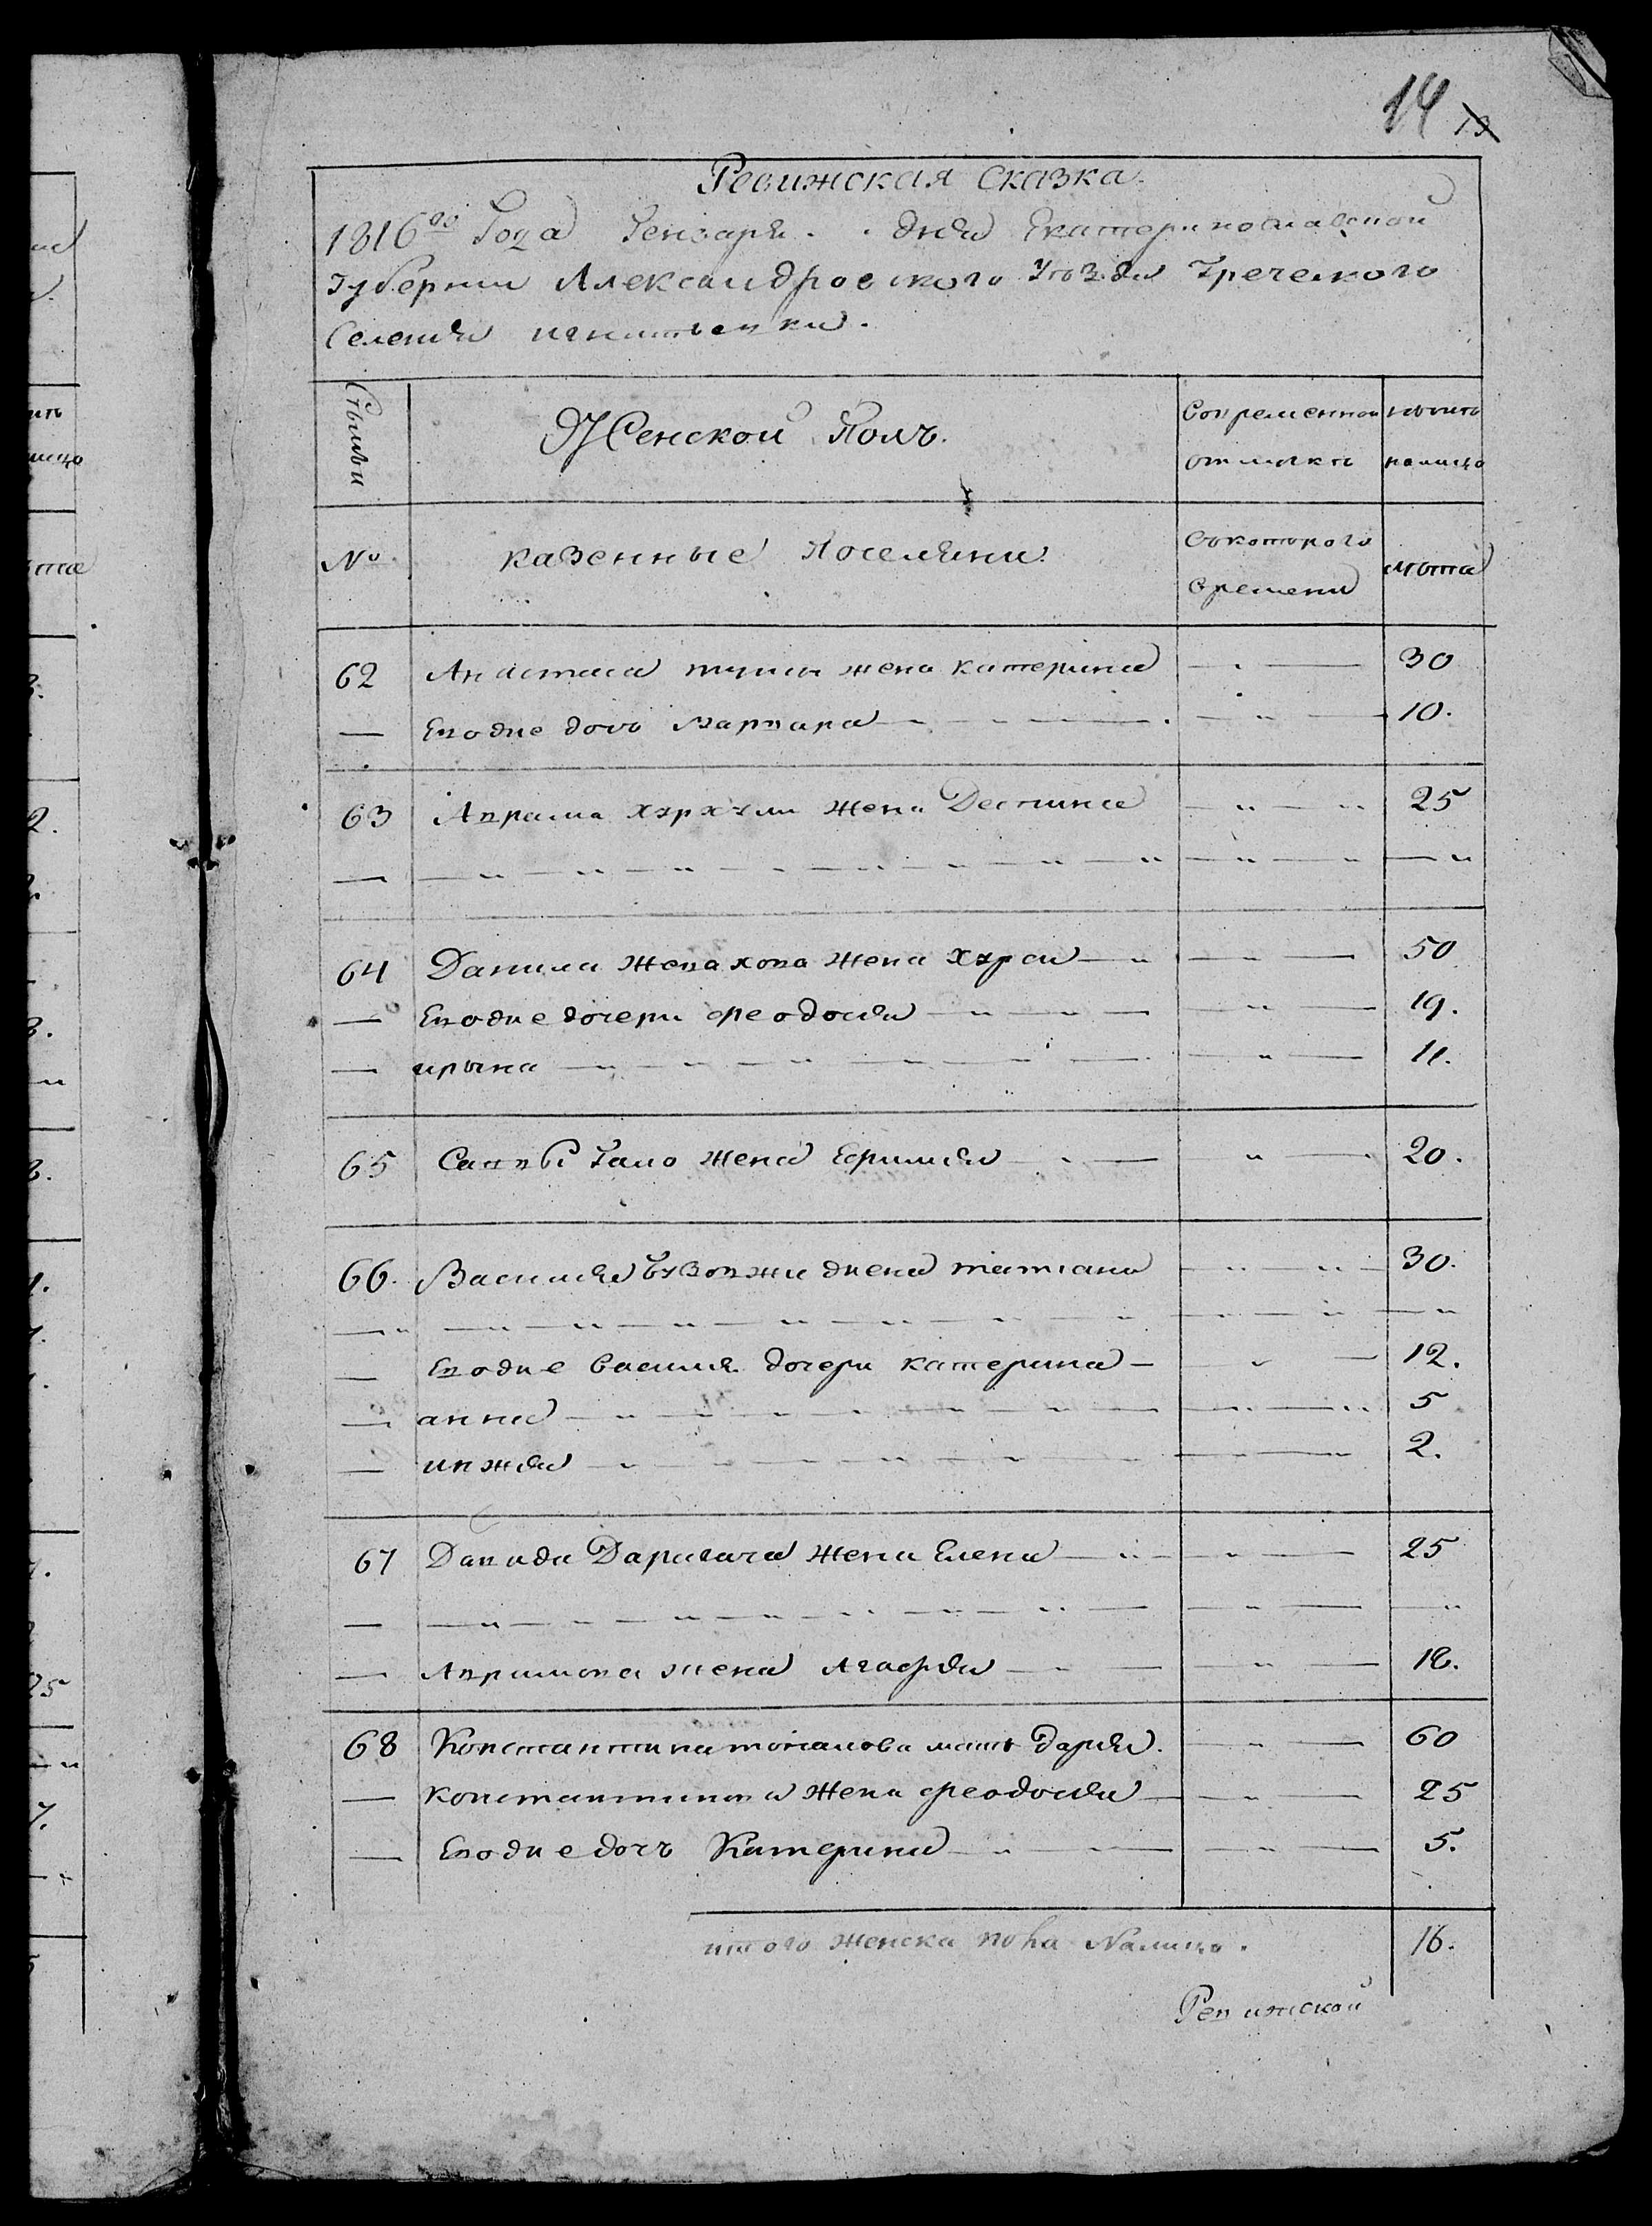 14 13
Ревижская Сказка.
1816го Года Генваря . . дня Екатеринославской
губернии Александровского Уѣзда Греческого
Селения игнатьевки.
Семьи
Женской Полъ.
Во временной
отлучкѣ
нынѣ
налицо
№
казенные Поселяни
Съ которого
времени
лѣта
62 Анастаса жена катерина 30
— Еводне дочь Варвара 10.
63 Аврама хархули жена Деспина 25
64 Данила жена хурси 50
— Еводне дочери феодосия 19.
— ирына 11.
65 Саввы Гало жена Ефимия 20.
66. Василия жена татиана 30.
Еводне василя дочери катерина 12.
— анна 5
— 2.
67 Давида Даригача жена Елена 25
— Аврамова жена Агафия 18.
68 Константина мать Дария. 60
— константина жена феодосия 25
— Еводне дочъ Катерина 5.
итого женска пола Налицо. 16.
Ревижской